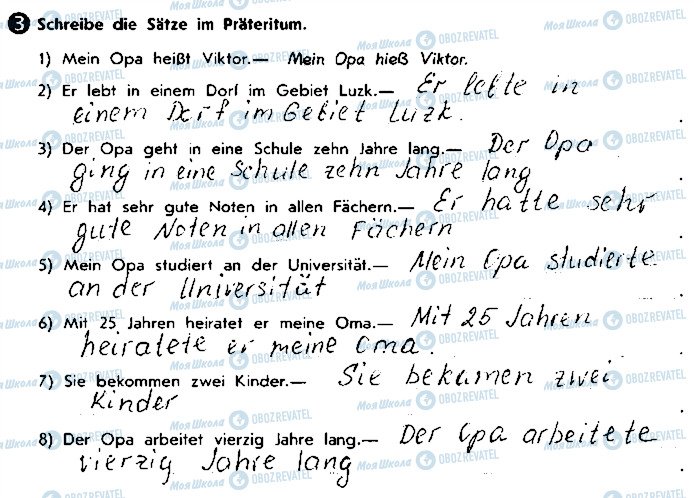 3 Schreibe die Sätze im Präteritum.
1) Mein Opa heißt Viktor.— Mein Opa hieß Viktor.
2) Er lebt in einem Dorf im Gebiet Luzk.— Er lebte in
einem Dorf im Gebiet Luzk.
3) Der Opa geht in eine Schule zehn Jahre lang.— Der Opa
ging in eine Schule zehn Jahre lang
4) Er hat sehr gute Noten in allen Fächern.— Er hatte sehr
gute Noten in allen Fächern
5) Mein Opa studiert an der Universität.— Mein Opa studierte
an der Universität
6) Mit 25 Jahren heiratet er meine Oma.— Mit 25 Jahren
heiratete er meine Oma.
7) Sie bekommen zwei Kinder.— Sie bekamen zwei
Kinder
8) Der Opa arbeitet vierzig Jahre lang.— Der Opa arbeitete
vierzig Jahre lang
Моя Школа OBOZREVATEL